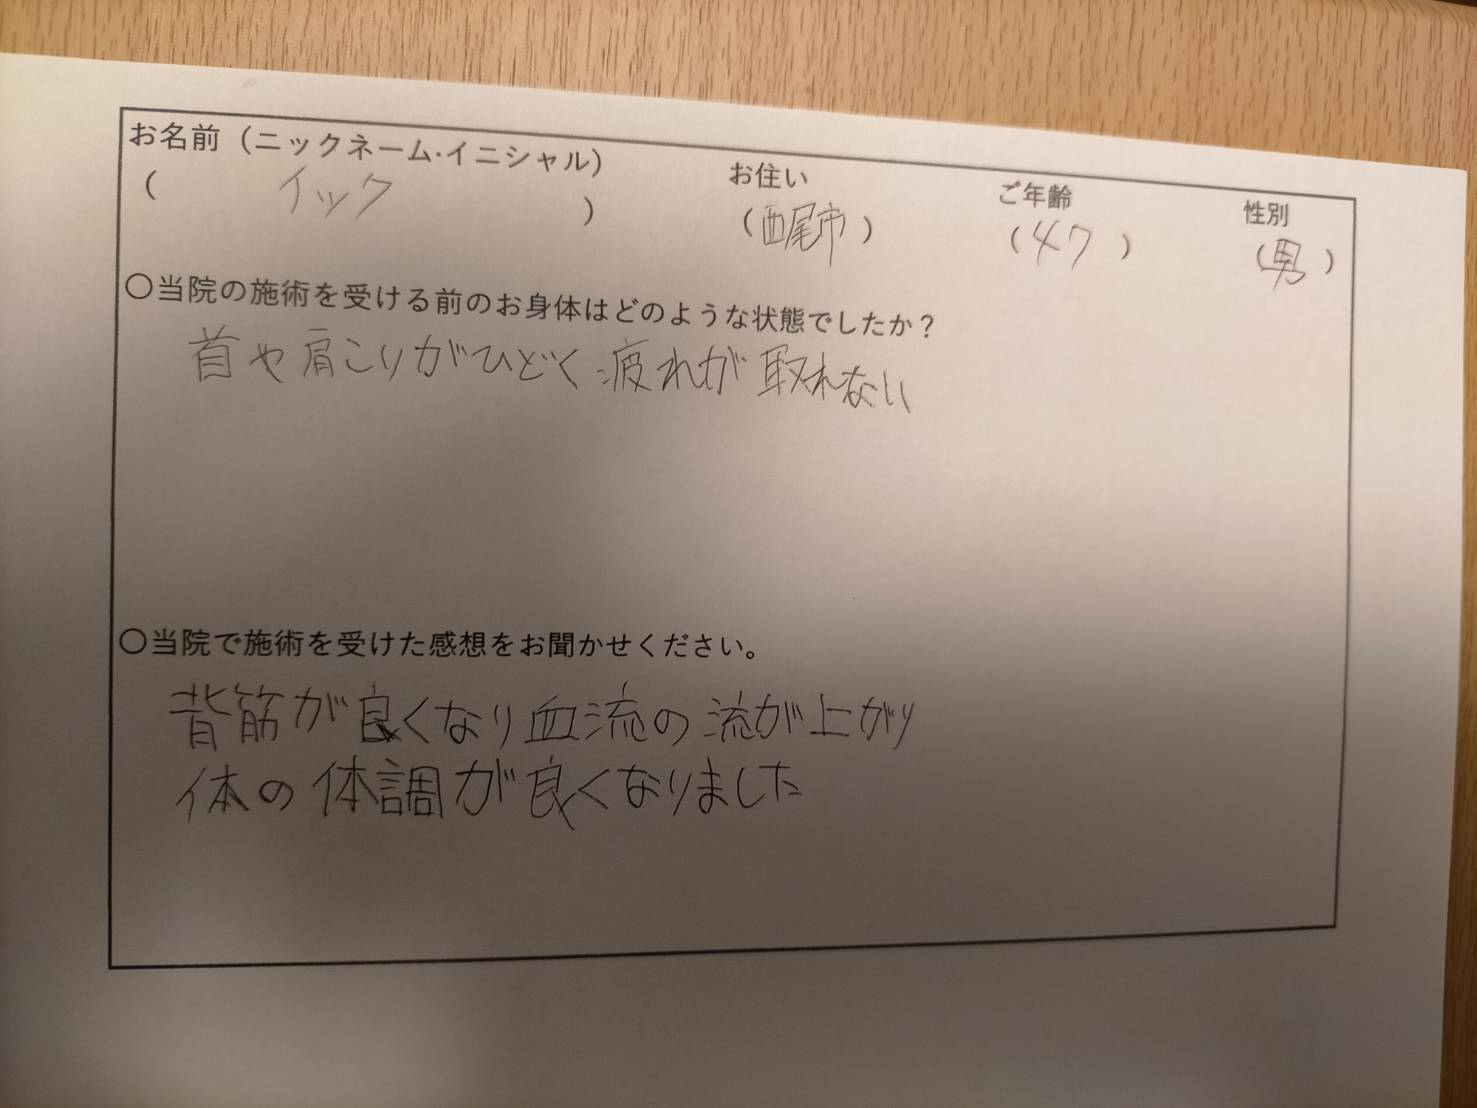 お名前（ニックネーム･イニシャル） お住い ご年齢 性別
（ イック ） （西尾市） （47） （男）
〇当院の施術を受ける前のお身体はどのような状態でしたか？
首や肩こりがひどく疲れが取れない
〇当院で施術を受けた感想をお聞かせください。
背筋が良くなり血流の流が上がり
体の体調が良くなりました